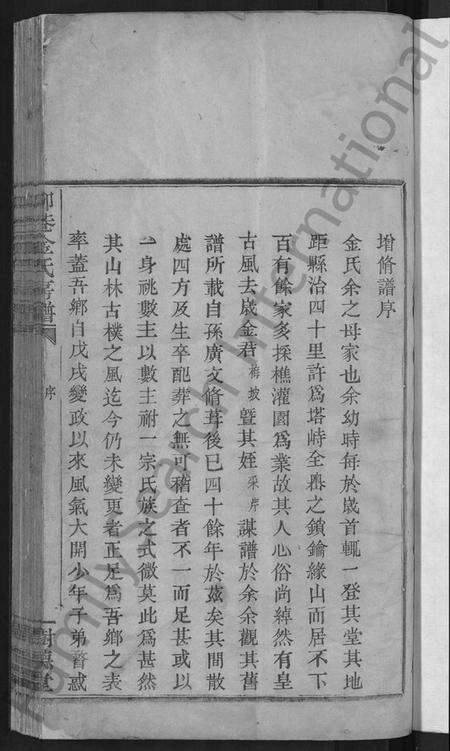 增脩譜序
金氏余之母家也余幼時每於歲首輒一登其堂其地
距縣治四十里許爲塔峙全縣之鎖鑰緣山而居不下
百有餘家多採樵灌園爲業故其人心俗尚綽然有皇
古風去歲金君 梅坡 曁其姪 采芹 謀譜於余余觀其舊
譜所載自孫廣文脩葺後已四十餘年於茲矣其間散
處四方及生卒配葬之無可稽查者不一而足甚或以
一身祧數主以數主祔一宗氏族之式微莫此爲甚然
其山林古樸之風迄今仍未變更者正足爲吾鄉之表
率蓋吾鄉自戊戌變政以來風氣大開少年子弟瞀惑
金氏宗譜
序
一
Family Search International